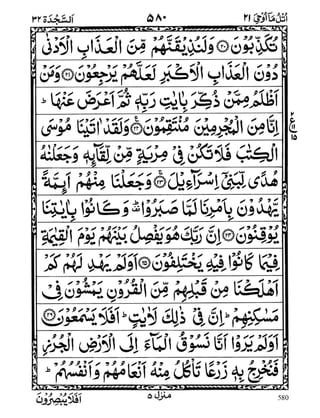 اُتْلُ مَآ اُوْحِيَ ٢١ ٥٨٠ اَلسَّجْدَة ٣٢
تُكَذِّبُوْنَ ﴿٢٠﴾ وَلَنُذِيْقَنَّهُمْ مِّنَ الْعَذَابِ الْاَدْنٰى
دُوْنَ الْعَذَابِ الْاَكْبَرِ لَعَلَّهُمْ يَرْجِعُوْنَ ﴿٢١﴾ وَمَنْ
اَظْلَمُ مِمَّنْ ذُكِّرَ بِاٰيٰتِ رَبِّهٖ ثُمَّ اَعْرَضَ عَنْهَا ؕ
اِنَّا مِنَ الْمُجْرِمِيْنَ مُنْتَقِمُوْنَ ﴿٢٢﴾ وَلَقَدْ اٰتَيْنَا مُوْسَى
الْكِتٰبَ فَلَا تَكُنْ فِيْ مِرْيَةٍ مِّنْ لِّقَآئِهٖ وَجَعَلْنٰهُ
هُدًى لِّبَنِيْٓ اِسْرَآءِيْلَ ﴿٢٣﴾ وَجَعَلْنَا مِنْهُمْ اَئِمَّةً
يَّهْدُوْنَ بِاَمْرِنَا لَمَّا صَبَرُوْا ؕ وَكَانُوْا بِاٰيٰتِنَا
يُوْقِنُوْنَ ﴿٢٤﴾ اِنَّ رَبَّكَ هُوَ يَفْصِلُ بَيْنَهُمْ يَوْمَ الْقِيٰمَةِ
فِيْمَا كَانُوْا فِيْهِ يَخْتَلِفُوْنَ ﴿٢٥﴾ اَوَلَمْ يَهْدِ لَهُمْ كَمْ
اَهْلَكْنَا مِنْ قَبْلِهِمْ مِّنَ الْقُرُوْنِ يَمْشُوْنَ فِيْ
مَسٰكِنِهِمْ ؕ اِنَّ فِيْ ذٰلِكَ لَاٰيٰتٍ ؕ اَفَلَا يَسْمَعُوْنَ ﴿٢٦﴾
اَوَلَمْ يَرَوْا اَنَّا نَسُوْقُ الْمَآءَ اِلَى الْاَرْضِ الْجُرُزِ
فَنُخْرِجُ بِهٖ زَرْعًا تَاْكُلُ مِنْهُ اَنْعَامُهُمْ وَاَنْفُسُهُمْ ؕ
اَفَلَا يُبْصِرُوْنَ منزل ٥ 580